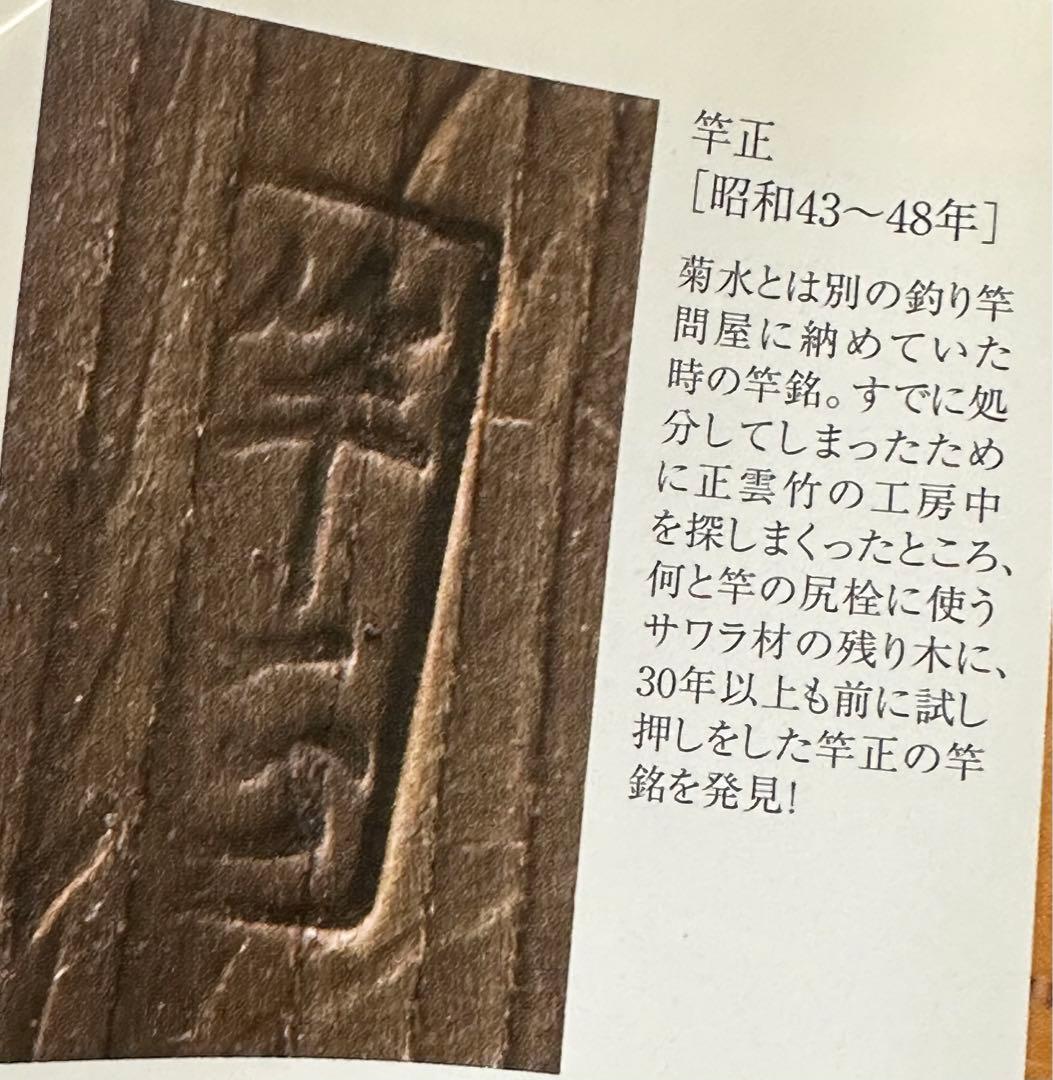 竿正
［昭和43～48年］
菊水とは別の釣り竿
問屋に納めていた
時の竿銘。すでに処
分してしまったため
に正雲竹の工房中
を探しまくったところ、
何と竿の尻栓に使う
サワラ材の残り木に、
30年以上も前に試し
押しをした竿正の竿
銘を発見！